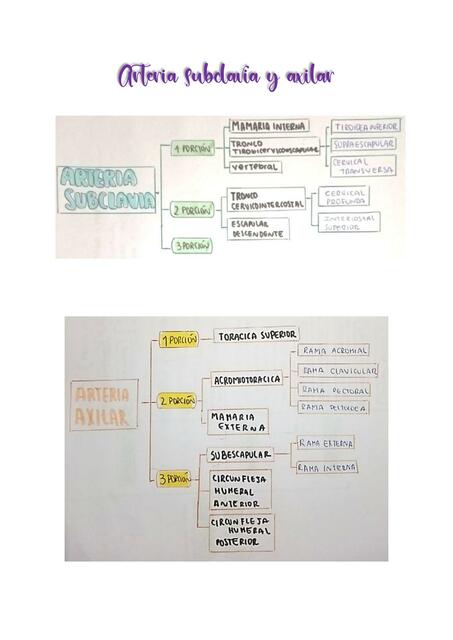 Arteria subclavia y axilar
ARTERIA
SUBCLAVIA
1 PORCIÓN
MAMARIA INTERNA
TRONCO
TIROBICERVICOESCAPULAR
VERTEBRAL
TIROIDEA INFERIOR
SUPRAESCAPULAR
CERVICAL
TRANSVERSA
2 PORCIÓN
TRONCO
CERVICOINTERCOSTAL
ESCAPULAR
DESCENDENTE
CERVICAL
PROFUNDA
INTERCOSTAL
SUPERIOR
3 PORCIÓN
ARTERIA
AXILAR
1 PORCIÓN
TORACICA SUPERIOR
2 PORCIÓN
ACROMIOTORACICA
MAMARIA
EXTERNA
RAMA ACROMIAL
RAMA CLAVICULAR
RAMA PECTORAL
RAMA DELTOIDEA
3 PORCIÓN
SUBESCAPULAR
CIRCUNFLEJA
HUMERAL
ANTERIOR
CIRCUNFLEJA
HUMERAL
POSTERIOR
RAMA EXTERNA
RAMA INTERNA